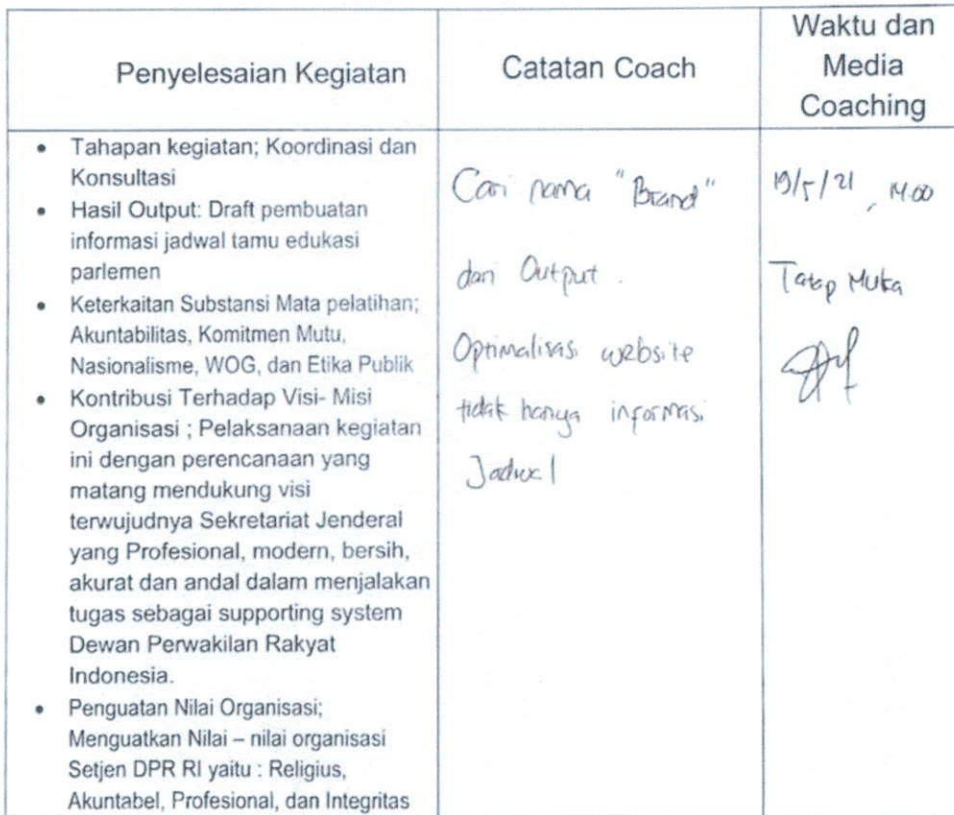 Penyelesaian Kegiatan
Catatan Coach
Waktu dan
Media
Coaching
• Tahapan kegiatan; Koordinasi dan
Konsultasi
• Hasil Output: Draft pembuatan
informasi jadwal tamu edukasi
parlemen
• Keterkaitan Substansi Mata pelatihan;
Akuntabilitas, Komitmen Mutu,
Nasionalisme, WOG, dan Etika Publik
• Kontribusi Terhadap Visi- Misi
Organisasi ; Pelaksanaan kegiatan
ini dengan perencanaan yang
matang mendukung visi
terwujudnya Sekretariat Jenderal
yang Profesional, modern, bersih,
akurat dan andal dalam menjalakan
tugas sebagai supporting system
Dewan Perwakilan Rakyat
Indonesia.
• Penguatan Nilai Organisasi;
Menguatkan Nilai – nilai organisasi
Setjen DPR RI yaitu : Religius,
Akuntabel, Profesional, dan Integritas
Cari nama "Brand"
dari Output.
Optimalisasi website
tidak hanya informasi
Jadwal
19/5/21, 14.00
Tatap Muka